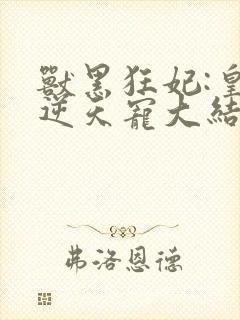 獸黑狂妃:皇
逆天寵大結
弗洛恩德